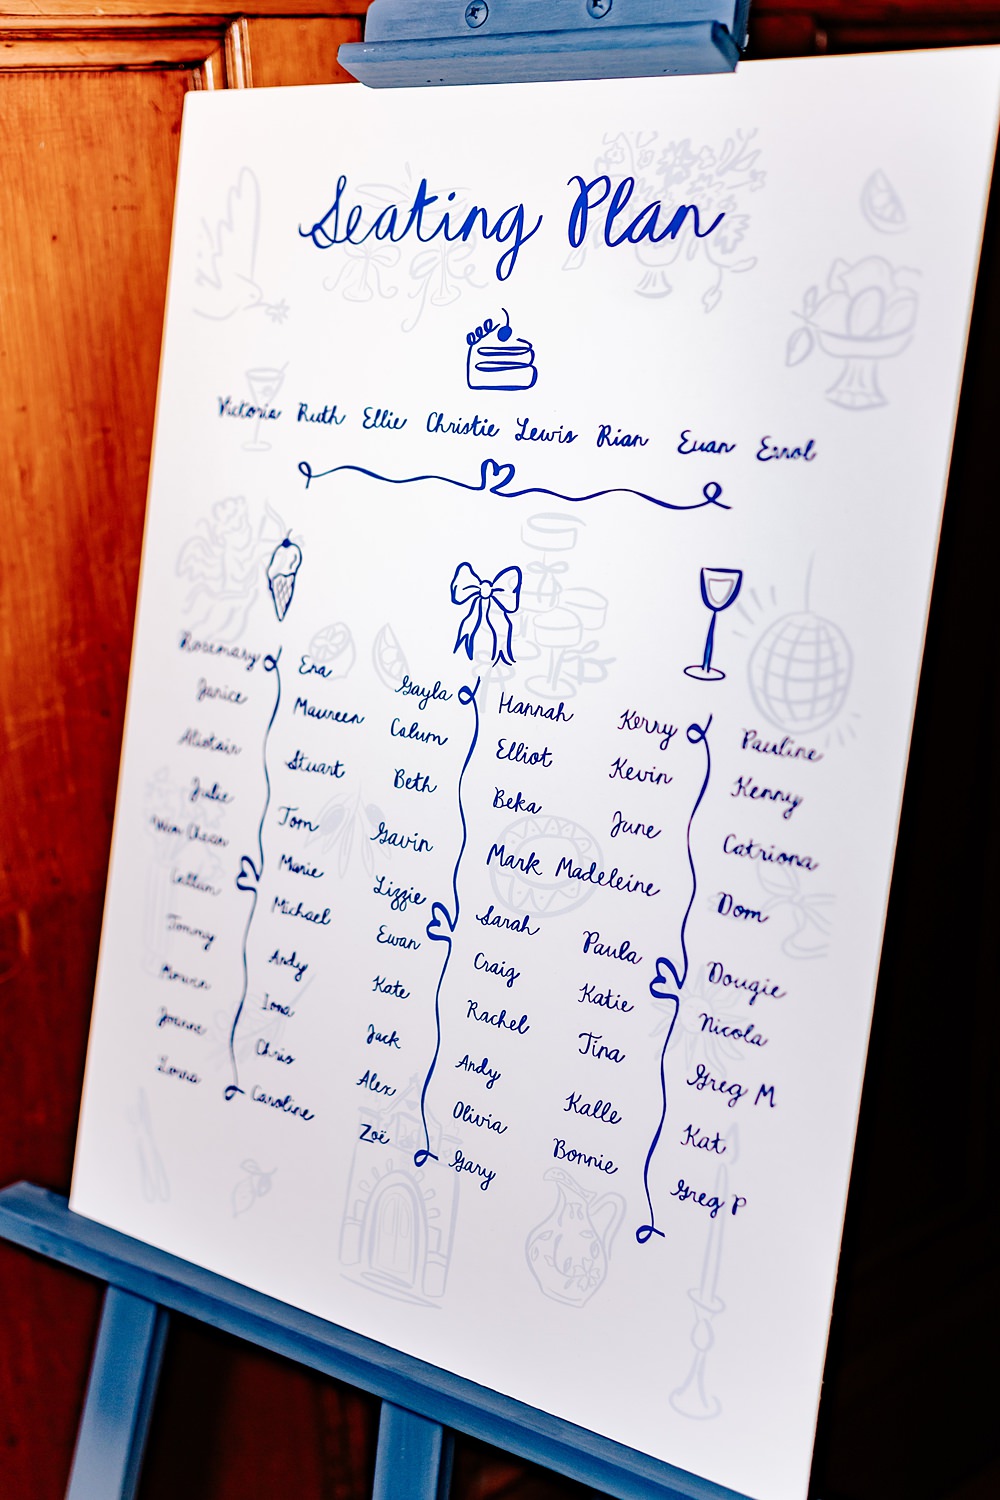 Seating Plan
Victoria Ruth Ellie Christie Lewis Rian Euan Errol
Rosemary
Janice
Alistair
Julie
Callum
Tommy
Joanne
Era
Maureen
Stuart
Tom
Marie
Michael
Andy
Iona
Chris
Caroline
Gayla
Calum
Beth
Gavin
Lizzie
Ewan
Kate
Jack
Alex
Zoë
Hannah
Elliot
Beka
Mark
Sarah
Craig
Rachel
Andy
Olivia
Gary
Kerry
Kevin
June
Madeleine
Paula
Katie
Tina
Kalle
Bonnie
Pauline
Kenny
Catriona
Dom
Dougie
Nicola
Greg M
Kat
Greg P